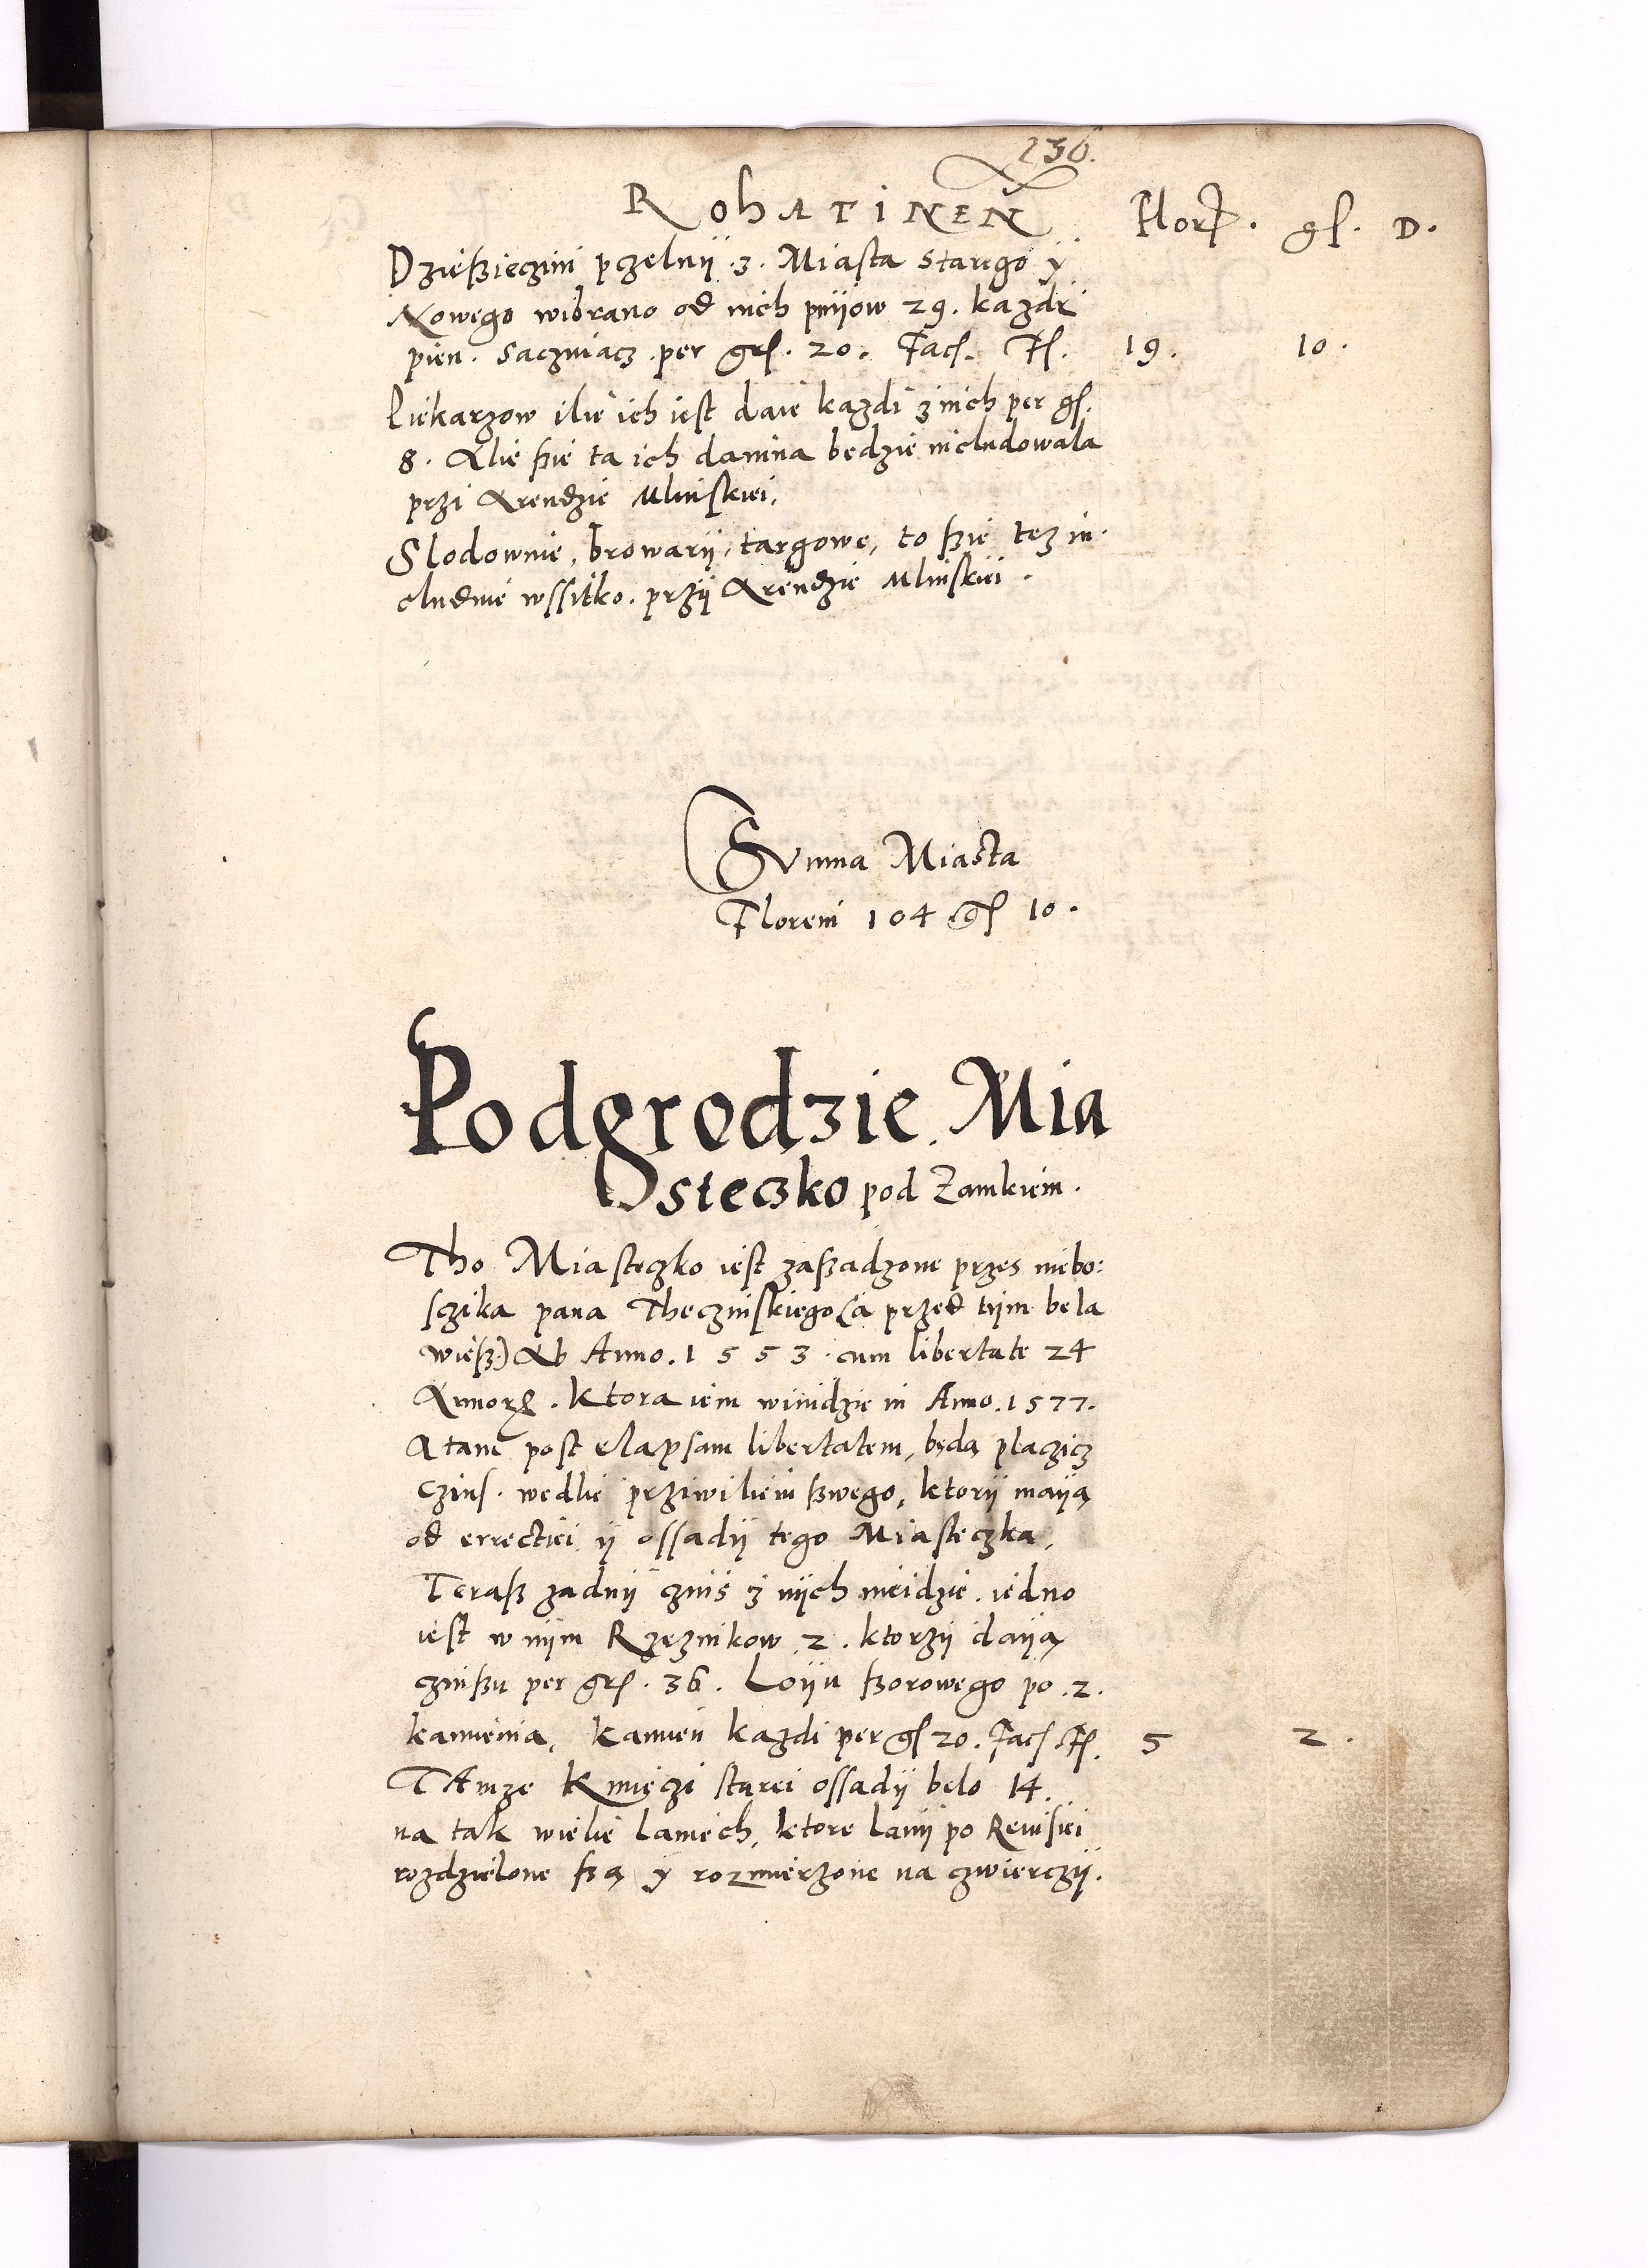 236.
RohATINEN Flor. gſ. D.
Dzießieczini pczelnÿ .3. Miasta starego y
Nowego wibrano od nich pnijow 29. kazdi
pien. saczuiacz per grſ. 20. Facſ. Fſ. 19. 10.
Piekarzow ilie ich iest daie kazdi z nich per gſ.
8. Alie ßie ta ich danina bedzie includowala
przi Arendzie Mlinskiei.
Slodownie, browarÿ, targowe, to ßie tez in-
cludnie wssitko. przÿ Arendzie Mlinskiei.
SVmma Miasta
Floreni 104 gſ 10.
Podgrodzie Mia
steczko pod Zamkiem.
Tho Miasteczko iest zaßadzone przes niebo:
sczika pana Theczinskiego (a przed tijm bela
wieß) Ab Anno. 1553. cum libertate 24
Annorum. Ktora iem winidzie in Anno. 1577.
A tam post elapsam libertatem, będą placzicz
czins. wedlie prziwiliem ßwego, ktorÿ maiją
od errectiei ÿ ossadÿ tego Miasteczka,
Teraß zadnÿ czins z nÿch nieidzie. iedno
iest w nÿm Rzeznikow 2. ktorzÿ daiją
czinßu per grſ. 36. Loiju ßorowego po .2.
kamienia, kamien kazdi per gſ 20. Facſ Fſ. 5 2.
TAmze Kmieczi starei ossadÿ belo 14.
na tak wielie Laniech, ktore Lanÿ po Reuisiei
rozdzielone ßą y rozmierzone na czwierczÿ.